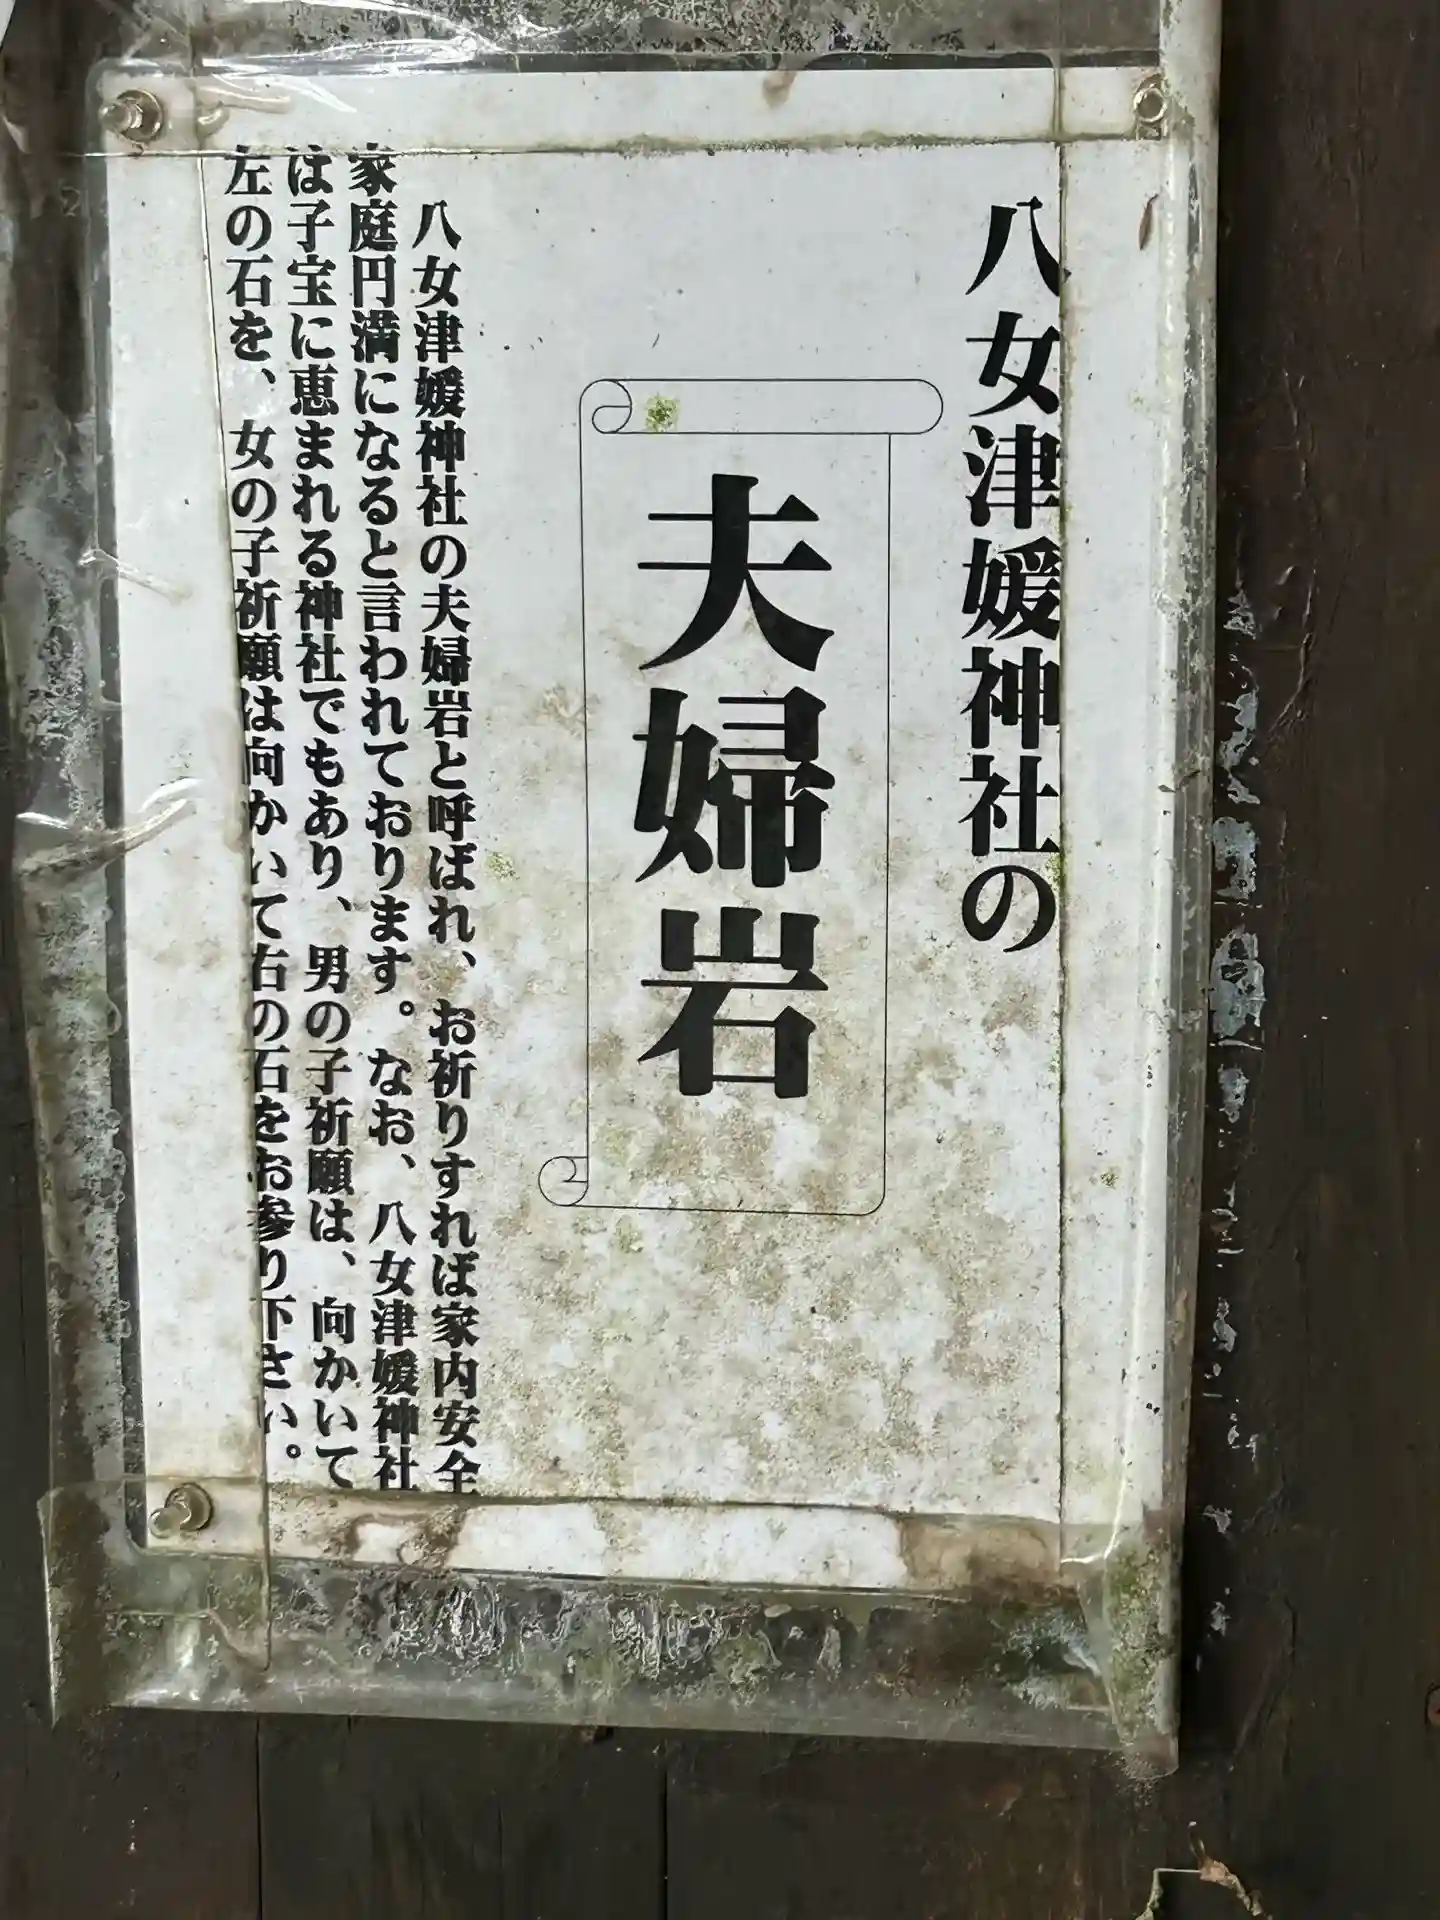 八女津媛神社の
夫婦岩
八女津媛神社の夫婦岩と呼ばれ、お祈りすれば家内安全
家庭円満になると言われております。なお、八女津媛神社
は子宝に恵まれる神社でもあり、男の子祈願は、向かいて
左の石を、女の子祈願は向かいて右の石をお参り下さい。